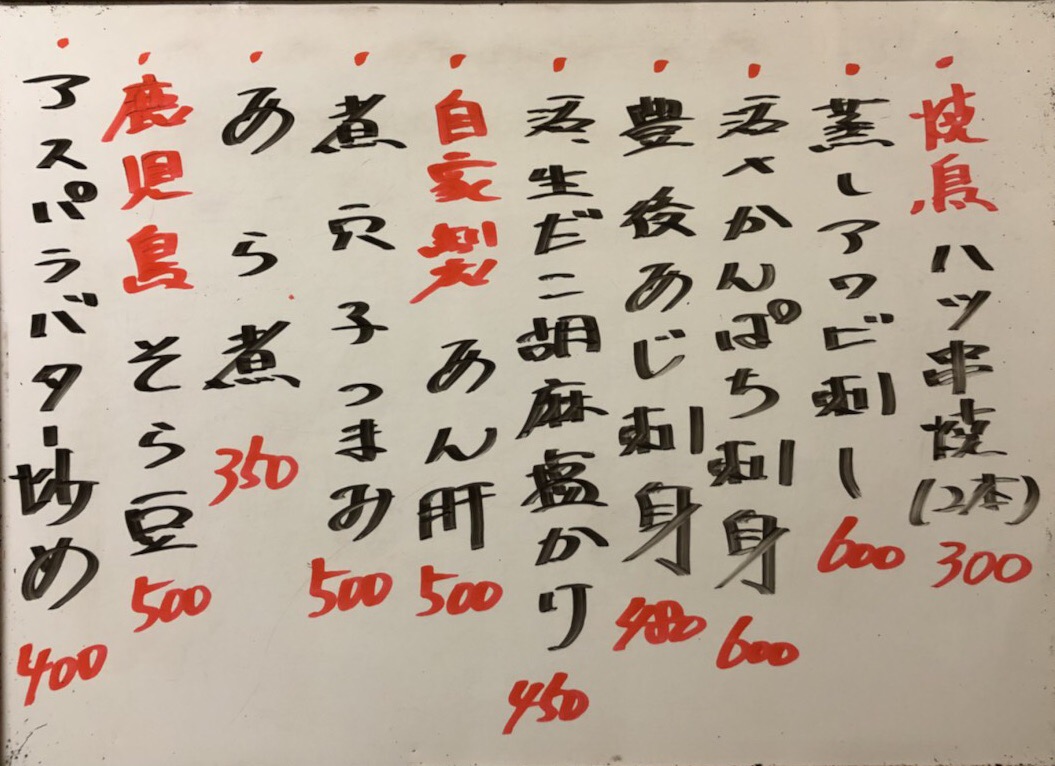 焼鳥 ハツ串焼(2本) 300
蒸しアワビ刺し 600
活〆かんぱち刺身 600
豊後あじ刺身 480
活生だこ胡麻塩かけ 450
自家製 あん肝 500
煮穴子つまみ 500
あら煮 350
鹿児島 そら豆 500
アスパラバター炒め 400